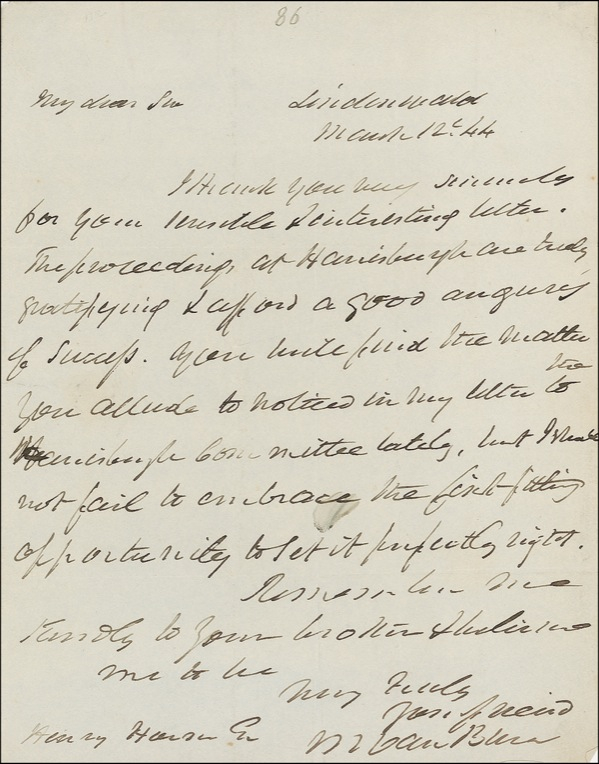 86
My dear Sir Lindenwald
March 12th 44
I thank you very sincerely
for your sensible & interesting letter.
The proceedings at Harrisburgh are truly
gratifying & afford a good augury
of success. You will find the matter
you allude to noticed in my letter to the
Harrisburgh Committee lately, but I shall
not fail to embrace the first fitting
opportunity to set it perfectly right.
Remember me
kindly to your brother & believe
me to be
very truly
your friend
M Van Buren
Henry Horn Er